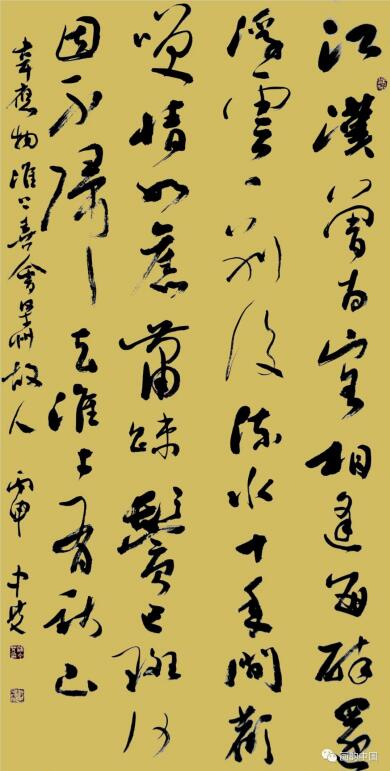 江漢曾为客相逢每醉還
浮雲一别後流水十年間歡
咲情如舊蕭疎鬢已斑何
因不歸去淮上有秋山
韋應物淮上喜會梁州故人 丙申